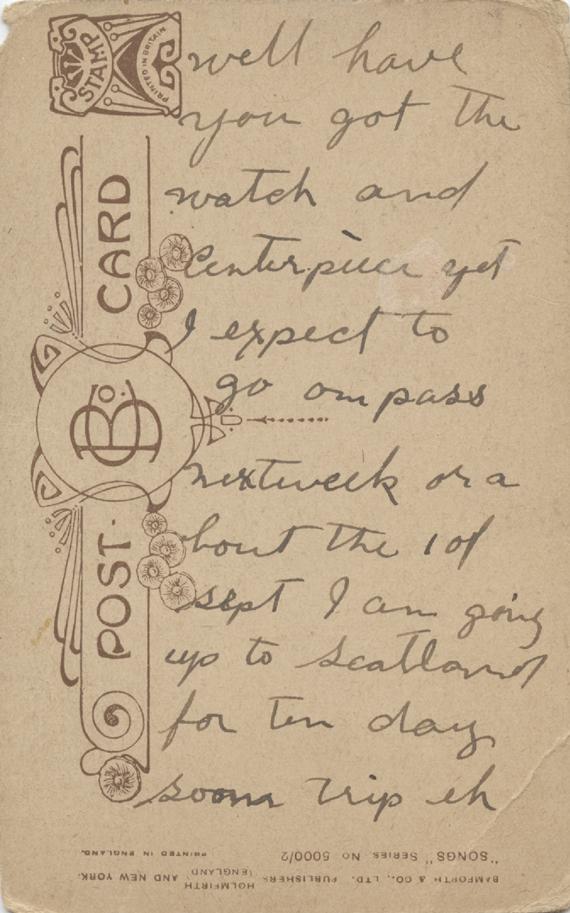 well have
you got the
watch and
Centerpiece yet
I expect to
go on pass
nextweek or a
bout the 1 of
sept I am going
up to Scatland
for ten day
some trip eh
STAMP
PRINTED IN BRITAIN
POST CARD
B Co.
BAMFORTH & CO., LTD. PUBLISHERS HOLMFIRTH (ENGLAND) AND NEW YORK.
"SONGS" SERIES. NO 5000/2 PRINTED IN ENGLAND.